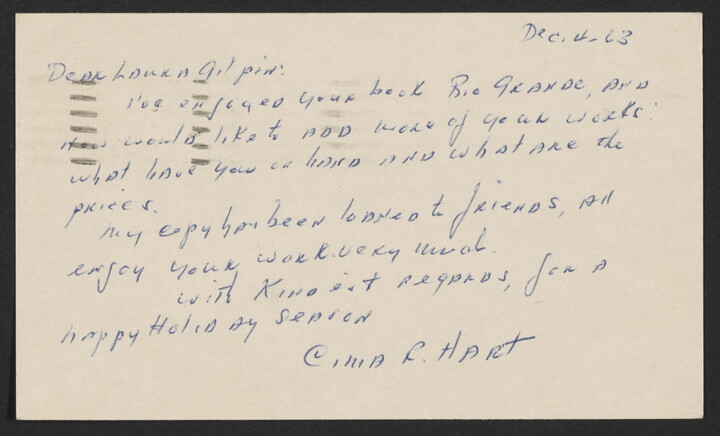 Dec. 4-63
Dear Laura Gilpin:
I've enjoyed your book Rio Grande, and
now would like to add more of your works:
what have you on hand and what are the
prices.
My copy has been loaned to friends, all
enjoy your work very much.
with Kindest regards, for a
happy Holiday Season
R. Hart